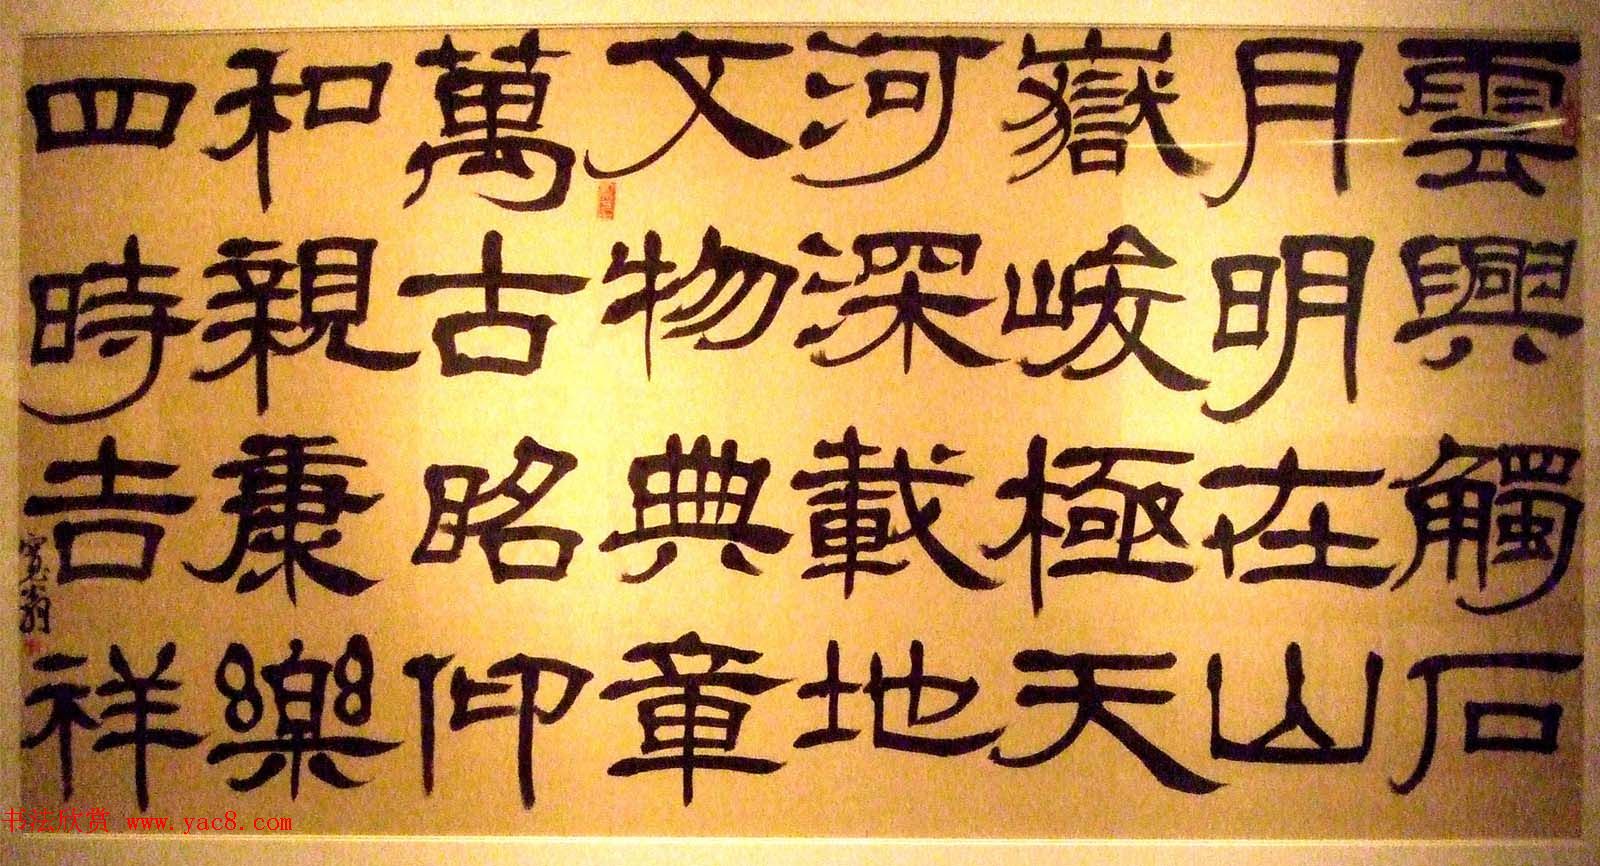 雲興觸石
月明在山
嶽峻極天
河深載地
文物典章
萬古昭仰
和親康樂
四時吉祥
书法欣赏 www.yac8.com